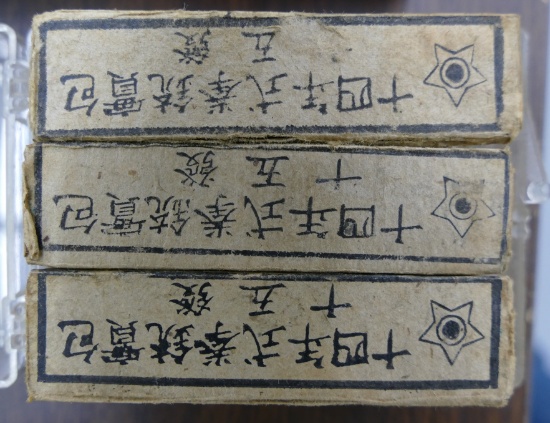 十四年式拳銃實包
十五發
十四年式拳銃實包
十五發
十四年式拳銃實包
五發